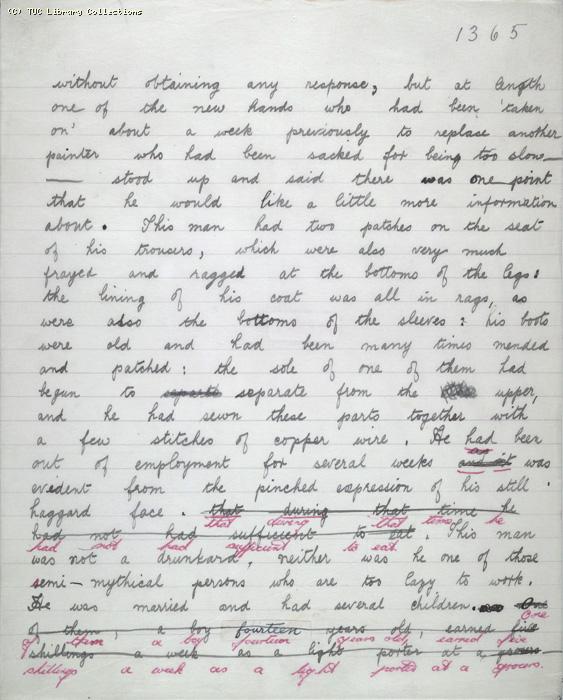 (C) TUC Library Collections
1365
without obtaining any response, but at length
one of the new hands who had been 'taken
on' about a week previously to replase another
painter who had been sacked for being too slow—
— stood up and said there was one point
that he would like a little more information
about. This man had two patches on the seat
of his trousers, which were also very much
frayed and ragged at the bottoms of the legs:
the lining of his coat was all in rags, as
were also the bottoms of the sleeves: his boots
were old and had been many times mended
and patched: the sole of one of them had
begun to separate from the upper,
and he had sewn these parts together with
a few stitches of copper wire. He had been
as
out of employment for several weeks and it was
evident from the pinched expression of his still
haggard face. that during that time he
that during that time he
had not had sufficient to eat. This man
had not had sufficient to eat.
was not a drunkard, neither was he one of those
semi-mythical persons who are too lazy to work.
He was married and had several children. One
One
of them, a boy fourteen years old, earned five
of them a boy fourteen years old, earned five
shillings a week as a light porter at a grocers
shillings a week as a light porter at a grocers.